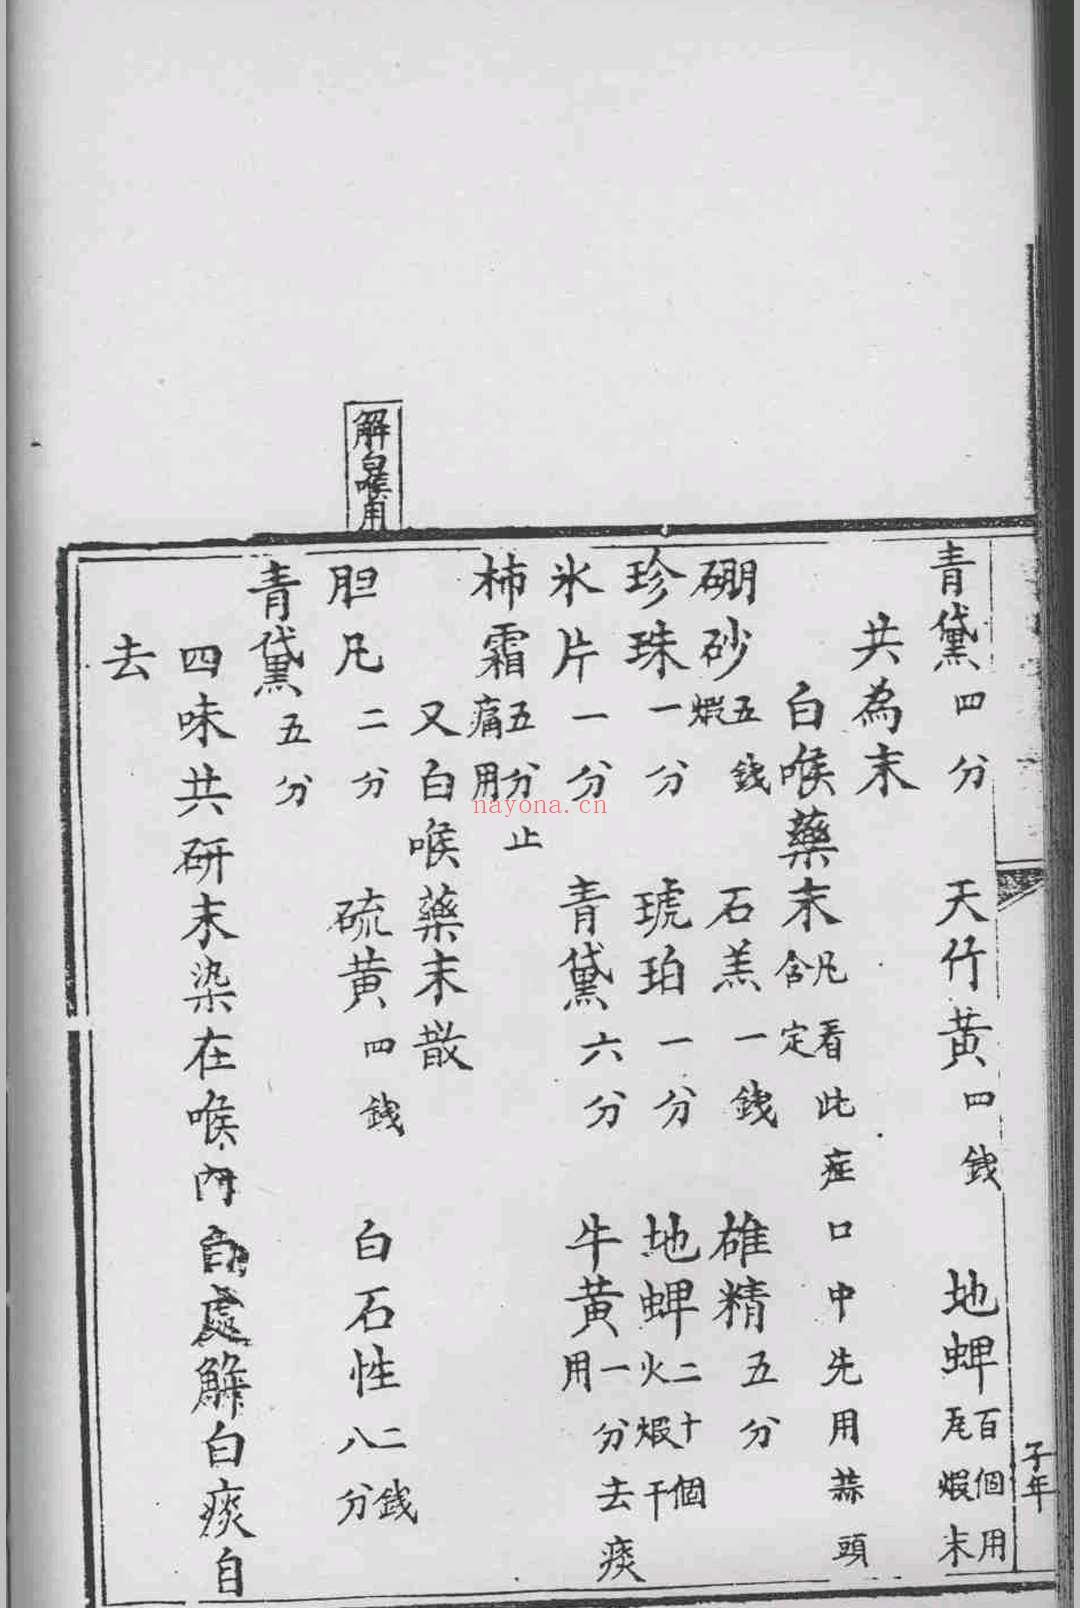 子年
青黛四分 天竹黃四銭 地蜱百個用瓦煆末
共為末
白喉藥末凡看此症口中先用蒜頭含定
硼砂五銭煆 石羔一銭 雄精五分
珍珠一分 琥珀一分 地蜱二十個火煆干
氷片一分 青黛六分 牛黄一分去痰用
柿霜五分止痛用
又白喉藥末散
解白喉用
胆凡二分 硫黄四銭 白石性二銭八分
青黛五分
四味共研末染在喉內白處解白痰自
去
nayona.cn